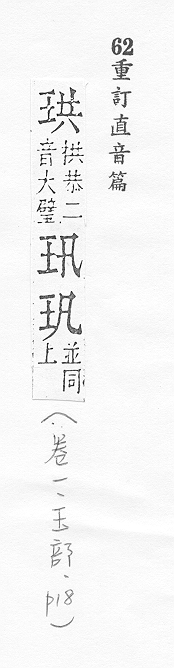 62重訂直音篇
珙
拱恭二
音大璧
並同
上
(卷一、玉部、p18)